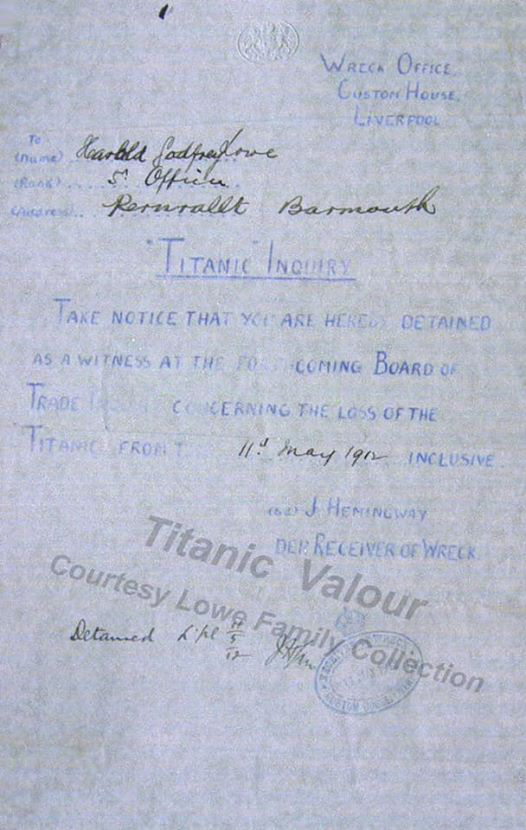 WRECK OFFICE,
CUSTOM HOUSE,
LIVERPOOL
To
(Name) Harold Godfrey Lowe
(Rank) 5th Officer
(Address) Penrallt Barmouth
"TITANIC" INQUIRY
TAKE NOTICE THAT YOU ARE HEREBY DETAINED
AS A WITNESS AT THE FORTHCOMING BOARD OF
TRADE INQUIRY CONCERNING THE LOSS OF THE
"TITANIC" FROM 11th May 1912 INCLUSIVE
J. HEMINGWAY
DEP. RECEIVER OF WRECK
Titanic Valour
Courtesy Lowe Family Collection
Detained L'pl 11/5/12